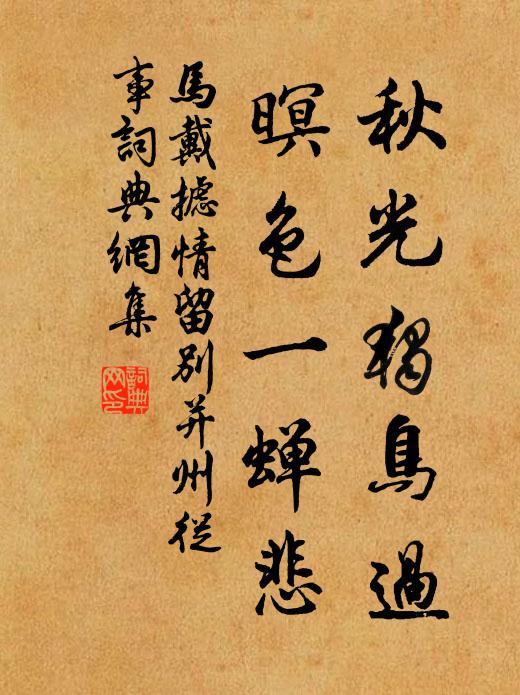 秋光獨鳥過
暝色一蟬悲
馬戴攄情留別并州從
事詞典網集
詞典
网印